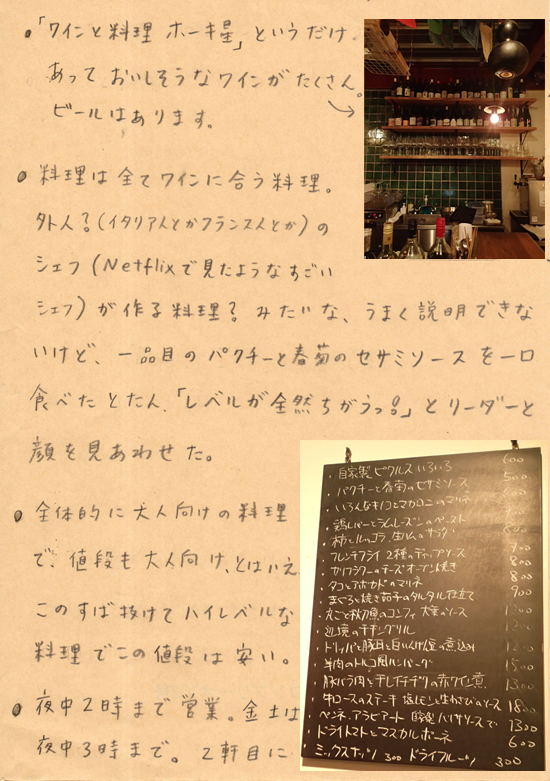 「ワインと料理 ホーキ星」というだけ
あって おいしそうなワインがたくさん。
ビールはあります。
料理は全てワインに合う料理。
外人?(イタリア人とかフランス人とか)の
シェフ(Netflixで見たようなすごい
シェフ)が作る料理?みたいな、うまく説明できな
いけど、一品目のパクチーと春菊のセサミソースを一口
食べたとたん、「レベルが全然ちがうっ!」とリーダーと
顔を見あわせた。
全体的に大人向けの料理
で、値段も大人向け、とはいえ
このずば抜けてハイレベルな
料理でこの値段は安い。
夜中2時まで営業。金土は
夜中3時まで。2軒目に
・自家製ピクルスいろいろ 600
・パクチーと春菊のセサミソース 500
・いろんなキノコとマカロニのマリネ
・鶏レバーとラムレーズンのペースト
・柿とルッコラ、生ハムのサラダ
・フレンチフライ 2種のディップソース 700
・カリフラワーのチーズオーブン焼き 800
・タコとアボカドのマリネ 800
・まぐろと焼き茄子のタルタル仕立て 900
・丸ごと秋刀魚のコンフィ ソース
チキングリル
・トリッパと豚耳と白いんげん豆の煮込み
・羊肉のトルコ風ハンバーグ 1500
・豚バラ肉と干しイチヂクの赤ワイン煮 1300
・牛ロースのステーキ 塩レモンと生わさびのソース 1800
・ペンネ・アラビアータ 自家製ハリサソースで 1300
・ドライトマトとマスカルポーネ 600
・ミックスナッツ 300 ドライフルーツ 300